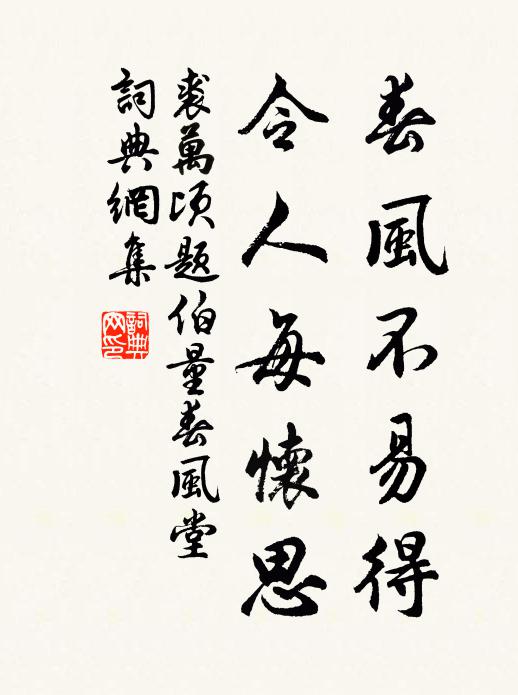 春風不易得
令人每懷思
裘萬頃題伯量春風堂
詞典網集
詞典網印